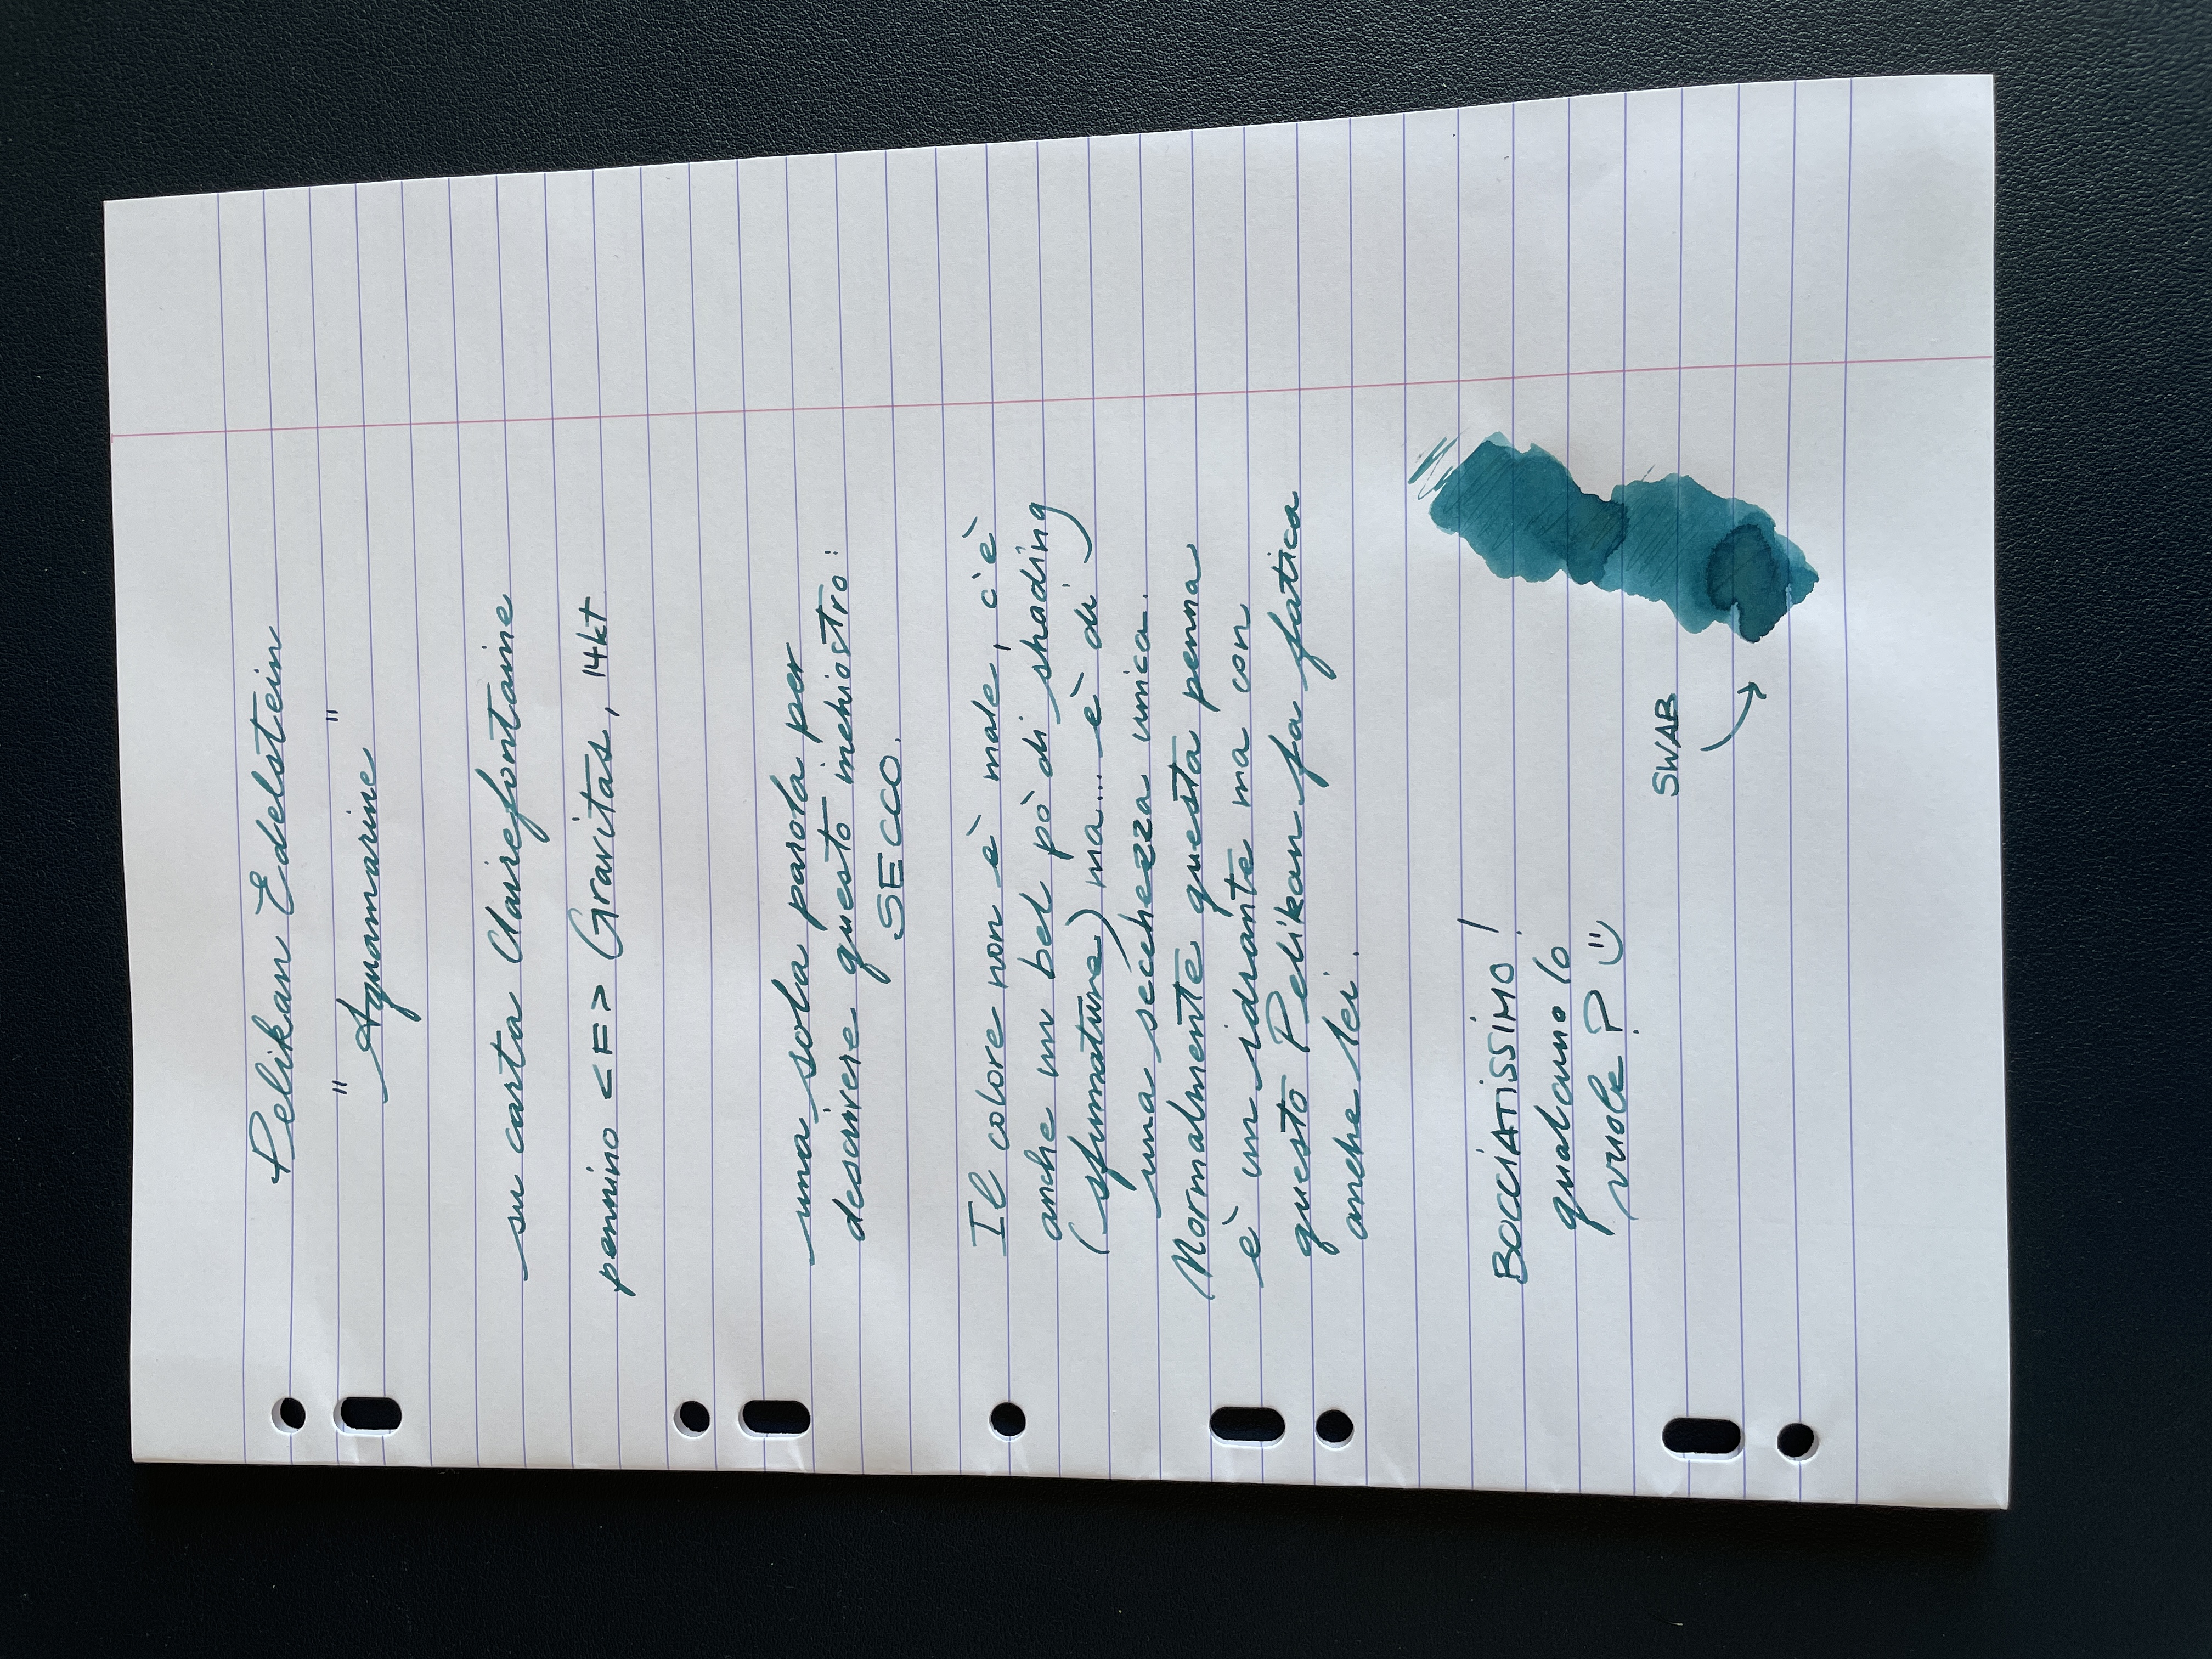 Pelikan Edelstein
"Aquamarine"
su carta Clairefontaine
pennino <F> Gravitas, 14kt
una sola parola per
descrivere questo inchiostro:
SECCO.
Il colore non è male, c'è
anche un bel pò di shading
(sfumature) ma... è di
una secchezza unica.
Normalmente questa penna
è un idrante ma con
questo Pelikan fa fatica
anche lei.
BOCCIATISSIMO!
qualcuno lo
vuole? :)
SWAB